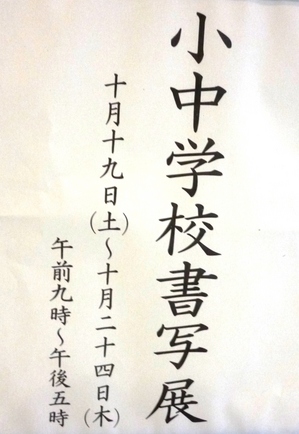 小中学校書写展
十月十九日(土)〜十月二十四日(木)
午前九時〜午後五時